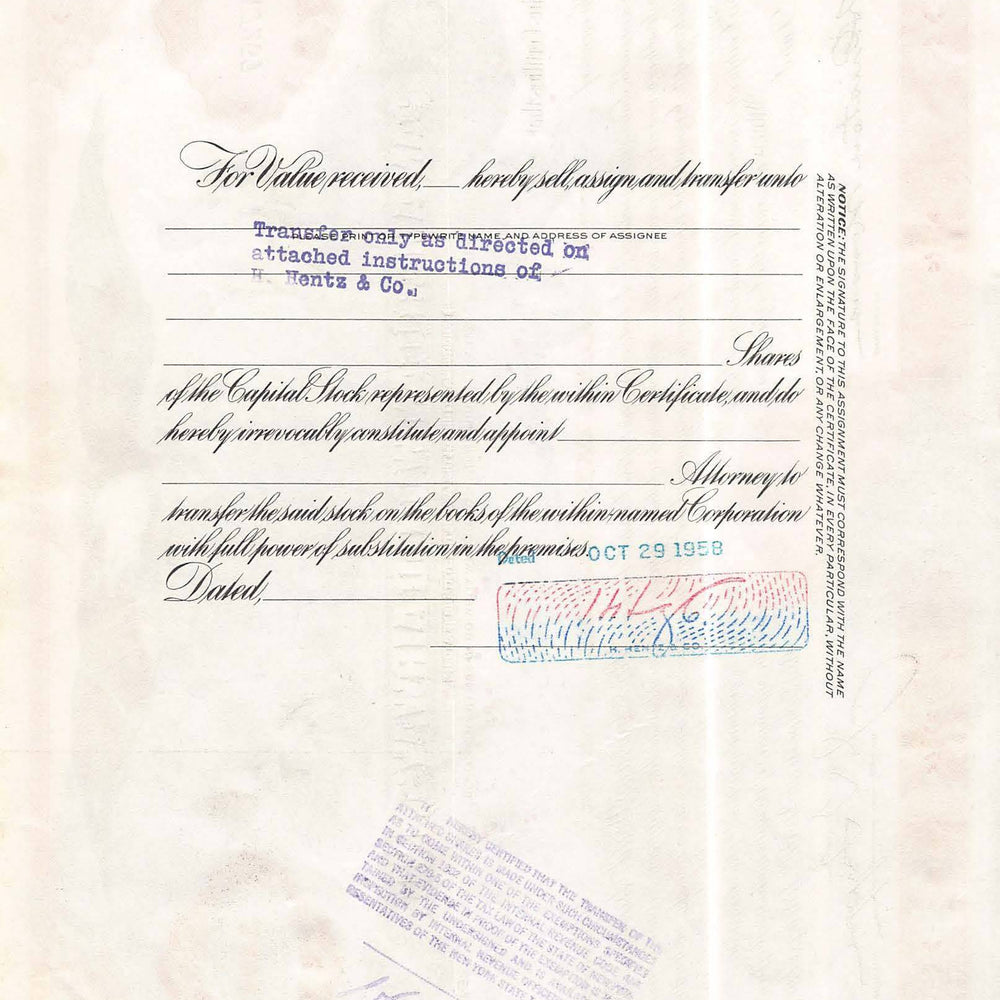 For Value received, ___ hereby sell, assign and transfer unto
PLEASE PRINT OR TYPEWRITE NAME AND ADDRESS OF ASSIGNEE
Transfer only as directed on
attached instructions of
H. Hentz & Co.
Shares
of the Capital Stock represented by the within Certificate, and do
hereby irrevocably constitute and appoint
Attorney to
transfer the said stock on the books of the within-named Corporation
with full power of substitution in the premises.
Dated OCT 29 1958
Dated,
H. HENTZ & CO.
NOTICE: THE SIGNATURE TO THIS ASSIGNMENT MUST CORRESPOND WITH THE NAME
AS WRITTEN UPON THE FACE OF THE CERTIFICATE, IN EVERY PARTICULAR, WITHOUT
ALTERATION OR ENLARGEMENT, OR ANY CHANGE WHATEVER.
HEREBY CERTIFIED THAT THE TRANSFER OF THE
ATTACHED SHARES IS MADE UNDER SUCH CIRCUMSTANCES
AS TO COME WITHIN ONE OF THE EXEMPTIONS SPECIFIED
IN SECTION OF THE INTERNAL REVENUE CODE
SECTION 270 OF THE TAX LAW OF THE STATE OF NEW
AND THAT EVIDENCE IN PROOF OF THE EXEMPTION IS
TAINED BY THE UNDERSIGNED AND IS
INSPECTION BY INTERNAL REVENUE OFFICERS
RESENTATIVES OF THE NEW YORK STATE